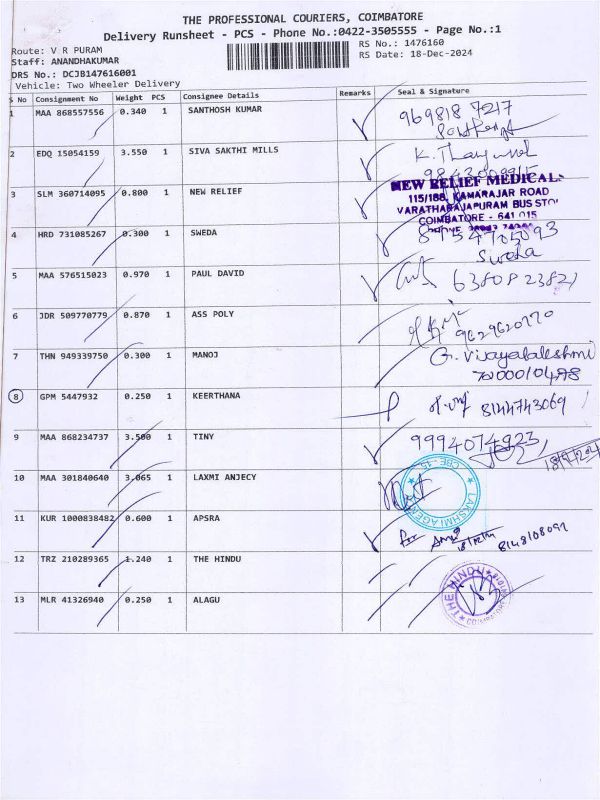 THE PROFESSIONAL COURIERS, COIMBATORE
Delivery Runsheet - PCS - Phone No.:0422-3505555 - Page No.:1
Route: V R PURAM
RS No.: 1476160
Staff: ANANDHAKUMAR
RS Date: 18-Dec-2024
DRS No.: DCJB147616001
Vehicle: Two Wheeler Delivery
S No Consignment No Weight PCS Consignee Details Remarks Seal & Signature
1 MAA 868557556 0.340 1 SANTHOSH KUMAR 969818 7217
2 EDQ 15054159 3.550 1 SIVA SAKTHI MILLS
3 SLM 360714095 0.800 1 NEW RELIEF
NEW RELIEF MEDICALS
115/188, KAMARAJAR ROAD
VARATHARAJAPURAM BUS STOP
COIMBATORE - 641 015
4 HRD 731085267 0.300 1 SWEDA
Sweda
5 MAA 576515023 0.970 1 PAUL DAVID
6 JDR 509770779 0.870 1 ASS POLY 9629620770
7 THN 949339750 0.300 1 MANOJ G. Vijayalakshmi
8 GPM 5447932 0.250 1 KEERTHANA 8144743069
9 MAA 868234737 3.500 1 TINY 9994074923
10 MAA 301840640 3.065 1 LAXMI ANJECY
LAKSHMI AGEN CBE-15
11 KUR 1000838482 0.600 1 APSRA 8148108092
12 TRZ 210289365 1.240 1 THE HINDU
13 MLR 41326940 0.250 1 ALAGU
THE HINDU